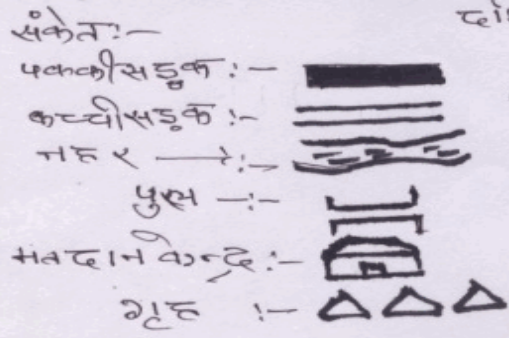 संकेतः-
पक्कीसड़क:-
कच्चीसड़क:-
नहर :-
पुल :-
मतदान केन्द्र:-
गृह :-